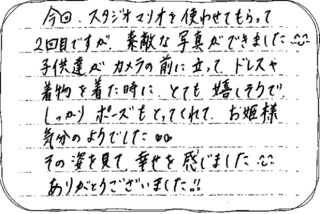 今回、スタジオマリオを使わせてもらって
2回目ですが、素敵な写真ができました
子供達が カメラの前に立って、ドレスや
着物を着た時に、とても 嬉しそうで
しっかり ポーズもとってくれて、お姫様
気分のようでした
その姿を見て、幸せを感じました
ありがとうございました!!